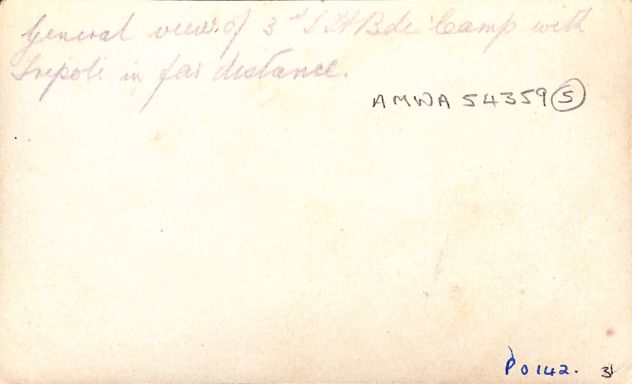 General view of 3rd L H Bde Camp with
Tripoli in far distance.
AMWA 54359 (5)
P0142. 31